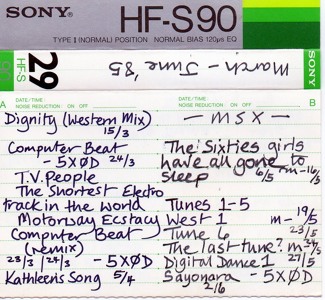 SONY HF-S90
TYPE I (NORMAL) POSITION NORMAL BIAS 120µs EQ
HF-S 29
March - June '85
A DATE / TIME: NOISE REDUCTION: ON OFF
Dignity (Western Mix)
15/3
Computer Beat
- 5XØD 24/3
T.V. People
The Shortest Electro
track in the world
Motorway Ecstacy
Computer Beat
(remix)
23/3 / 24/3 - 5XØD
Kathleens Song 5/4
B DATE / TIME: NOISE REDUCTION: ON OFF
- MSX -
The Sixties girls
have all gone to
sleep 6/5 m-16/5
Tunes 1-5
West 1 m-19/5
Tune 6 23/5
The last tune? m
Digital Dance 1 27/5
Sayonara - 5XØD
2/6